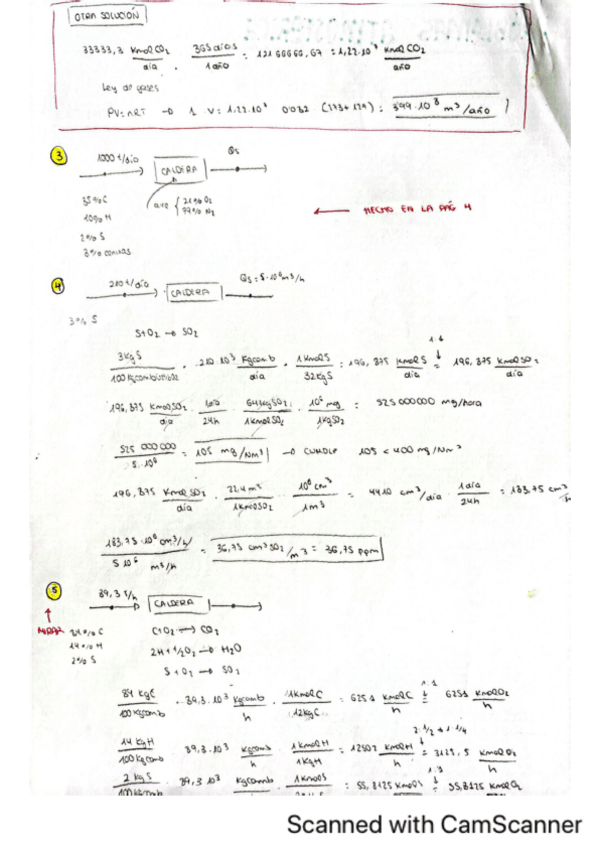 OTRA SOLUCIÓN
33333,3 KmolCO₂/día · 365 días/1 año = 12166666,67 = 1,22·10⁷ KmolCO₂/año
Ley de gases
PV=nRT → 1 V = 1,22·10⁷ 0'082 (273+129) = 3'99·10⁸ m³/año
3 1000 t/día CALDERA Qs
85% C aire { 21% O₂
10% H 79% N₂
2% S
3% cenizas
← HECHO EN LA PÁG 4
4 210 t/día CALDERA Qs = 5·10⁶ m³/h
3% S
S+O₂ → SO₂
1:1
3 KgS/100 Kgcombustible · 210·10³ Kgcomb/día · 1 KmolS/32 KgS = 196,875 KmolS/día = 196,875 KmolSO₂/día
196,875 KmolSO₂/día · 1día/24h · 64 KgSO₂/1 KmolSO₂ · 10⁶ mg/1 KgSO₂ = 525000000 mg/hora
525 000 000/5·10⁶ = 105 mg/Nm³ → CUMPLE 105 < 400 mg/Nm³
196,875 KmolSO₂/día · 22,4 m³/1 KmolSO₂ · 10⁶ cm³/1 m³ = 4410 cm³/día · 1 día/24h = 183,75 cm³/h
183,75·10⁶ cm³/h / 5·10⁶ m³/h = 36,75 cm³SO₂/m³ = 36,75 ppm
5 89,3 t/h CALDERA
MIRAR 84% C C+O₂ → CO₂
14% H 2H+½O₂ → H₂O
2% S S+O₂ → SO₂
1:1
84 KgC/100 Kgcomb · 89,3·10³ Kgcomb/h · 1 KmolC/12 KgC = 6251 KmolC/h = 6251 KmolO₂/h
2:1/2 → 1:1/4
14 KgH/100 Kgcomb 89,3·10³ Kgcomb/h · 1 KmolH/1 KgH = 12502 KmolH/h = 3125,5 KmolO₂/h
1:1
2 KgS/100 Kgcomb · 89,3·10³ Kgcomb · 1 KmolS = 55,8125 KmolS = 55,8125 KmolO₂
Scanned with CamScanner